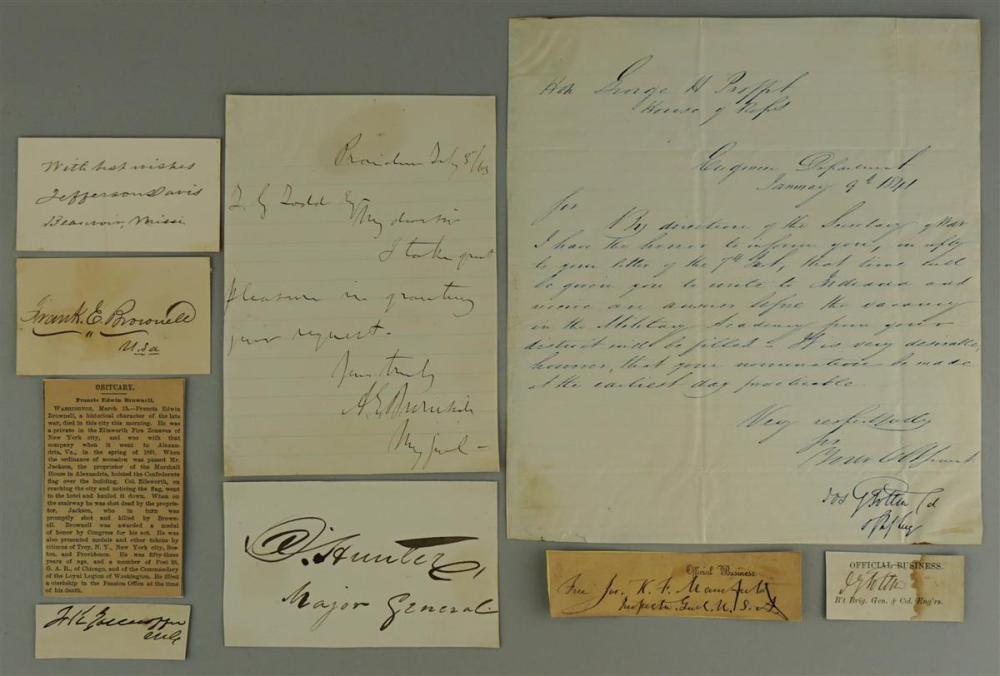 With best wishes
Jefferson Davis
Beauvoir, Missi
Frank. E. Brownell
U.S.a
OBITUARY.
Francis Edwin Brownell.
WASHINGTON, March 15.—Francis Edwin
Brownell, a historical character of the late
war, died in this city this morning. He was
a private in the Ellsworth Fire Zouaves of
New York city, and was with that
company when it went to Alexan-
dria, Va., in the spring of 1861. When
the ordinance of secession was passed Mr.
Jackson, the proprietor of the Marshall
House in Alexandria, hoisted the Confederate
flag over the building. Col. Ellsworth, on
reaching the city and noticing the flag, went
to the hotel and hauled it down. When on
the stairway he was shot dead by the proprie-
tor, Jackson, who in turn was
promptly shot and killed by Brown-
ell. Brownell was awarded a medal
of honor by Congress for his act. He was
also presented medals and other tokens by
citizens of Troy, N. Y., New York city, Bos-
ton, and Providence. He was fifty-three
years of age, and a member of Post 28,
G. A. R., of Chicago, and of the Commandery
of the Loyal Legion of Washington. He filled
a clerkship in the Pension Office at the time
of his death.
Providence July 8
Todd
My dear sir
I take great
pleasure in granting
your request.
Yours truly
A E Burnside
D. Hunter,
Major General
Hon George H Proffit
House of Reps
Engineer Department
January 9th 1841
Sir
By direction of the Secretary of War
I have the honor to inform you, in reply
to your letter of the 7th Inst, that time will
be given you to write to Indiana and
receive an answer before the vacancy
in the Military Academy from your
district will be filled. It is very desirable,
however, that your nomination be made
at the earliest day practicable.
Very respectfully
Sir
Your Obt Servant
Jos G Totten
Official Business
Free Jos. K. F. Mansfield
Inspector Genl U.S.
OFFICIAL BUSINESS.
J G Totten
B't Brig. Gen. & Col. Eng'rs.